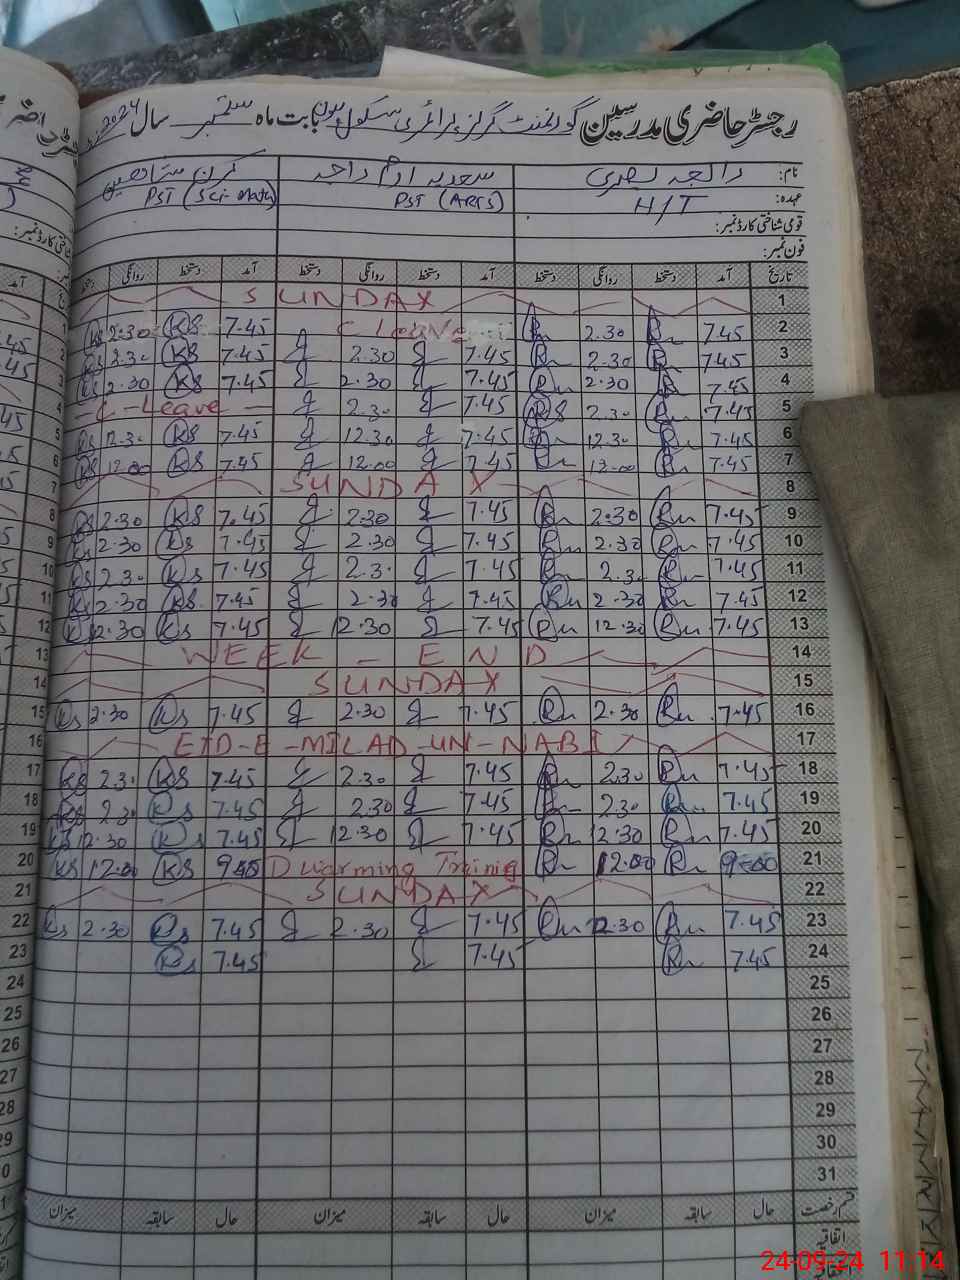 رجسٹر حاضری مدرسین گورنمنٹ گرلز پرائمری سکول بابت ماہ ستمبر سال 2024
نام: سعدیہ ارم راجہ
عہدہ: H/T PST (ARTS) PST (Sci-Math)
قومی شناختی کارڈ نمبر:
فون نمبر:
تاریخ آمد دستخط روانگی دستخط آمد دستخط روانگی دستخط آمد دستخط روانگی
1 SUNDAY
2 7.45 Rn 2.30 Rn C Leave 7.45 KS 2.30 KS
3 7.45 Rn 2.30 Rn 7.45 2.30 7.45 KS 2.30 KS
4 7.45 Rn 2.30 Rn 7.45 2.30 7.45 KS 2.30 KS
5 7.45 Rn 2.30 7.45 2.30 C-Leave
6 7.45 Rn 12.30 Rn 7.45 12.30 7.45 KS 12.30 KS
7 7.45 Rn Rn 7.45 12.00 7.45 KS 12.00 KS
8 SUNDAY
9 7.45 Rn 2.30 Rn 7.45 2.30 7.45 KS 2.30 KS
10 7.45 Rn 2.30 Rn 7.45 2.30 7.45 Ks 2.30 Ks
11 7.45 Rn 2.30 Rn 7.45 2.30 7.45 Ks 2.30 Ks
12 7.45 Rn 2.30 Rn 7.45 2.30 7.45 KS 2.30 Ks
13 7.45 Rn 12.30 Rn 7.45 12.30 7.45 Ks 12.30 Ks
14 WEEK - END
15 SUNDAY
16 7.45 Rn 2.30 Rn 7.45 2.30 7.45 Ks 2.30 Ks
17 EID-E-MILAD-UN-NABI
18 7.45 Rn 2.30 Rn 7.45 2.30 7.45 KS 2.30 KS
19 7.45 Rn 2.30 Rn 7.45 2.30 7.45 Ks 2.30 Ks
20 7.45 Rn 12.30 Rn 7.45 12.30 7.45 Ks 12.30 KS
21 9:00 Rn 12.00 Rn Dwarming Trainig 9:00 KS 12.00 KS
22 SUNDAY
23 7.45 Rn 2.30 Rn 7.45 2.30 7.45 Ks 2.30 Ks
24 7.45 Rn 7.45 7.45 Ks
25
26
27
28
29
30
31
قسم رخصت حال سابقہ میزان حال سابقہ میزان حال سابقہ میزان
اتفاقیہ
24-09-24 11:14